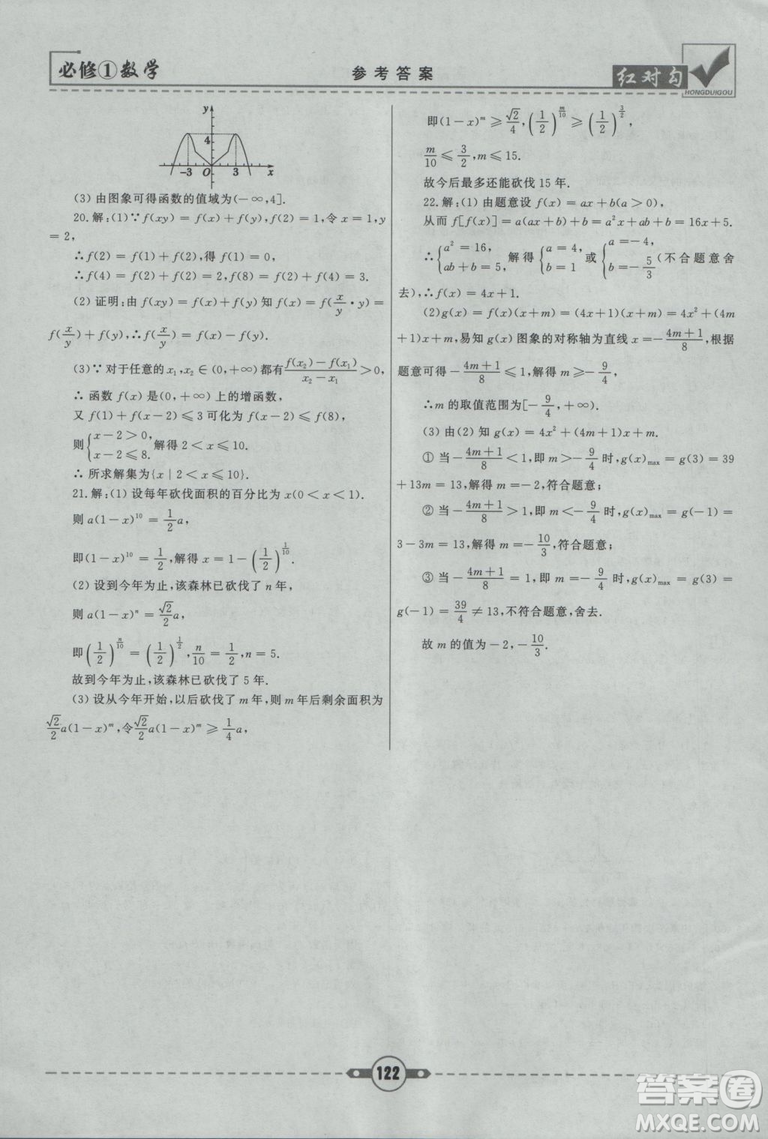 必修①数学
参考答案
红对勾
HONGDUIGOU
y
4
-3 O 3 x
(3) 由图象可得函数的值域为(-∞,4].
20.解:(1)∵f(xy)=f(x)+f(y),f(2)=1,令x=1,y
=2,
∴f(2)=f(1)+f(2),得f(1)=0,
∴f(4)=f(2)+f(2)=2,f(8)=f(2)+f(4)=3.
(2)证明:由f(xy)=f(x)+f(y)知f(x)=f(x/y·y)=
f(x/y)+f(y),∴f(x/y)=f(x)-f(y).
(3)∵对于任意的x₁,x₂∈(0,+∞)都有(f(x₂)-f(x₁))/(x₂-x₁)>0,
∴函数f(x)是(0,+∞)上的增函数,
又f(1)+f(x-2)≤3可化为f(x-2)≤f(8),
则{x-2>0, x-2≤8. 解得2<x≤10.
∴所求解集为{x|2<x≤10}.
21.解:(1)设每年砍伐面积的百分比为x(0<x<1).
则a(1-x)¹⁰=1/2 a,
即(1-x)¹⁰=1/2,解得x=1-(1/2)^(1/10).
(2)设到今年为止,该森林已砍伐了n年,
则a(1-x)ⁿ=√2/2 a,
即(1/2)^(n/10)=(1/2)^(1/2),n/10=1/2,n=5.
故到今年为止,该森林已砍伐了5年.
(3)设从今年开始,以后砍伐了m年,则m年后剩余面积为
√2/2 a(1-x)^m,令√2/2 a(1-x)^m≥1/4 a,
即(1-x)^m≥√2/4,(1/2)^(m/10)≥(1/2)^(3/2),
m/10≤3/2,m≤15.
故今后最多还能砍伐15年.
22.解:(1)由题意设f(x)=ax+b(a>0),
从而f[f(x)]=a(ax+b)+b=a²x+ab+b=16x+5,
∴{a²=16, ab+b=5, 解得{a=4, b=1 或{a=-4, b=-5/3 (不合题意舍
去),∴f(x)=4x+1.
(2)g(x)=f(x)(x+m)=(4x+1)(x+m)=4x²+(4m
+1)x+m,易知g(x)图象的对称轴为直线x=-(4m+1)/8,根据
题意可得-(4m+1)/8≤1,解得m≥-9/4,
∴m的取值范围为[-9/4,+∞).
(3)由(2)知g(x)=4x²+(4m+1)x+m,
①当-(4m+1)/8<1,即m>-9/4时,g(x)max=g(3)=39
+13m=13,解得m=-2,符合题意;
②当-(4m+1)/8>1,即m<-9/4时,g(x)max=g(-1)=
3-3m=13,解得m=-10/3,符合题意;
③当-(4m+1)/8=1,即m=-9/4时,g(x)max=g(3)=
g(-1)=39/4≠13,不符合题意,舍去.
故m的值为-2,-10/3.
122
答案圈
MXQE.COM